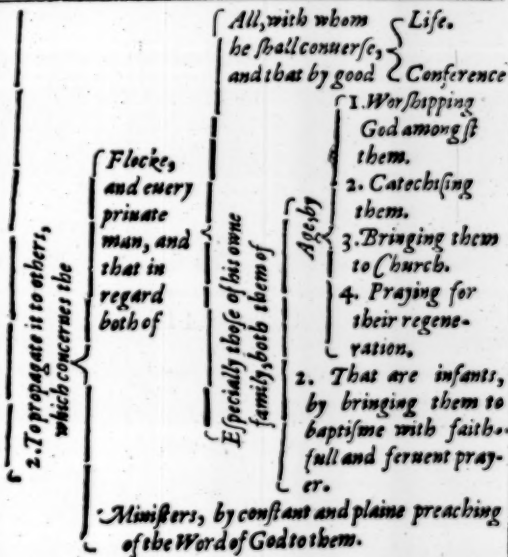 2. To propagate it to others,
which concernes the
Flocke,
and euery
priuate
man, and
that in
regard
both of
All, with whom
he ſhall conuerſe,
and that by good
Life.
Conference
Eſpecially thoſe of his owne
family, both them of
Age, by
1. Worſhipping
God amongſt
them.
2. Catechiſing
them.
3. Bringing them
to Church.
4. Praying for
their regene-
ration.
2. That are infants,
by bringing them to
baptiſme with faith-
full and feruent pray-
er.
Miniſters, by conſtant and plaine preaching
of the Word of God to them.